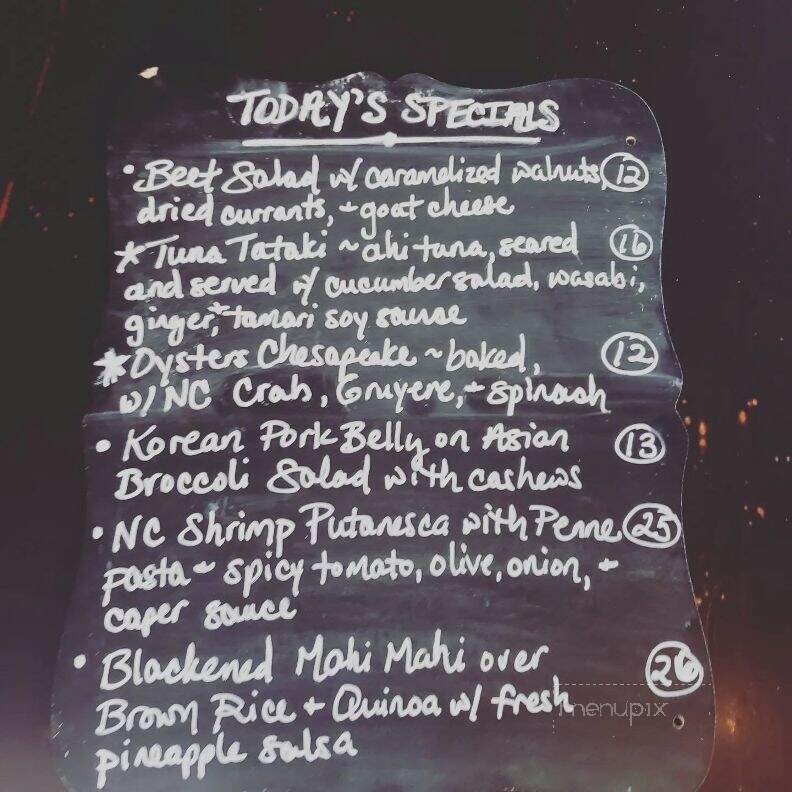 TODAY'S SPECIALS
• Beet Salad w/ caramelized walnuts, 12
dried currants, + goat cheese
* Tuna Tataki ~ ahi tuna, seared 16
and served w/ cucumber salad, wasabi,
ginger, + tamari soy sauce
* Oysters Chesapeake ~ baked, 12
w/ NC Crab, Gruyere, + spinach
• Korean Pork Belly on Asian 13
Broccoli Salad with cashews
• NC Shrimp Putanesca with Penne 25
pasta ~ spicy tomato, olive, onion, +
caper sauce
• Blackened Mahi Mahi over 26
Brown Rice + Quinoa w/ fresh
pineapple salsa
menupix